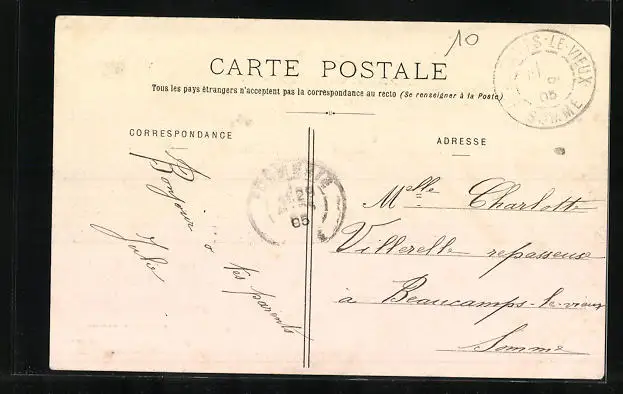 10
CARTE POSTALE
Tous les pays étrangers n'acceptent pas la correspondance au recto (Se renseigner à la Poste)
CORRESPONDANCE
Bonjour à
tes parents
ADRESSE
Melle Charlotte
Villerelle repasseuse
à Beaucamps-le-vieux
Somme
LE-VIEUX
05
SOMME
05